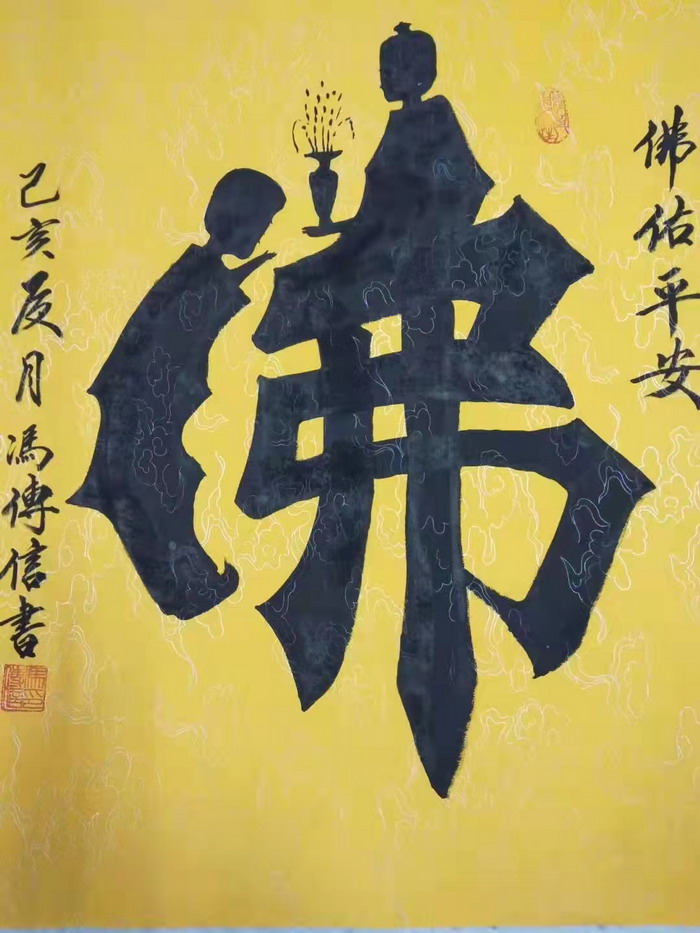 佛佑平安
佛
己亥辰月馮傳信書